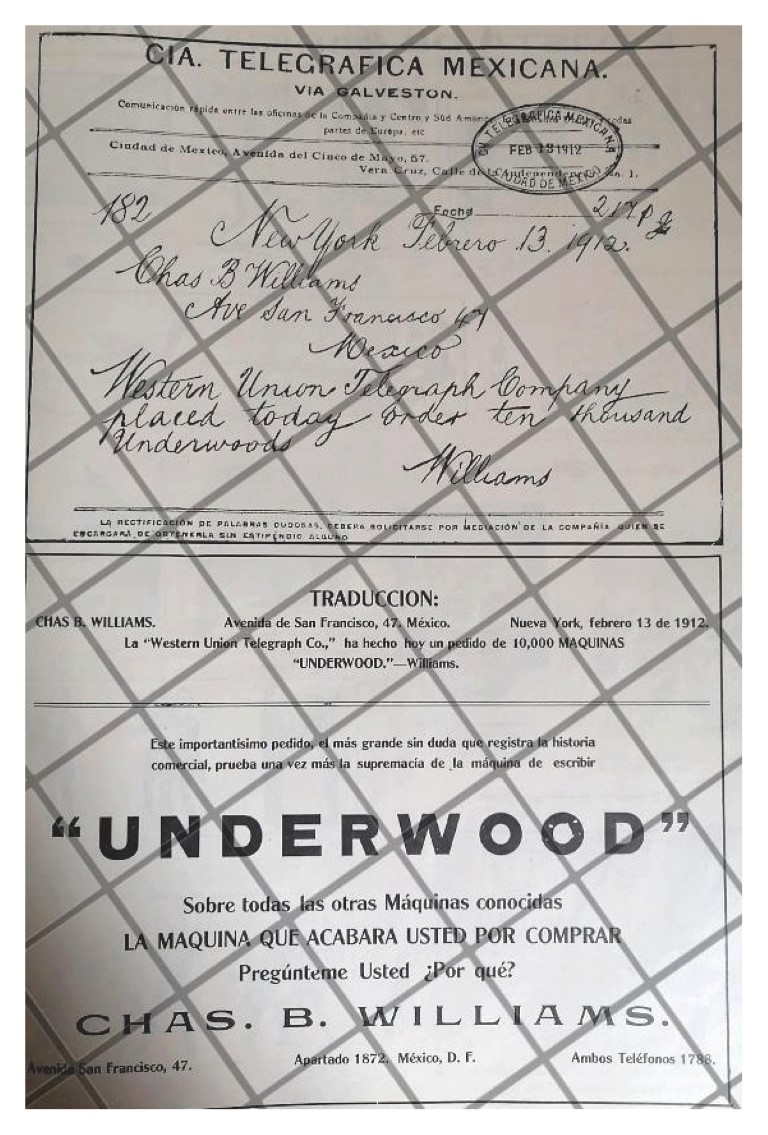 CIA. TELEGRAFICA MEXICANA.
VIA GALVESTON.
Comunicación rápida entre las oficinas de la Compañia y Centro y Sud America, todas
partes de Europa, etc
Ciudad de Mexico, Avenida del Cinco de Mayo, 57.
Vera Cruz, Calle de la Independencia, n. 1.
CIA TELEGRAFICA MEXICANA
FEB 13 1912
CIUDAD DE MEXICO
Fecha
182
217 p
New York Febrero 13. 1912.
Chas B Williams
Ave San Francisco 47
Mexico
Western Union Telegraph Company
placed today order ten thousand
Underwoods
Williams
LA RECTIFICACIÓN DE PALABRAS DUDOSAS, DEBERA SOLICITARSE POR MEDIACIÓN DE LA COMPAÑÍA QUIEN SE
ENCARGARÁ DE OBTENERLA SIN ESTIPENDIO ALGUNO
TRADUCCION:
CHAS B. WILLIAMS. Avenida de San Francisco, 47. México. Nueva York, febrero 13 de 1912.
La “Western Union Telegraph Co.,” ha hecho hoy un pedido de 10,000 MAQUINAS
“UNDERWOOD.”—Williams.
Este importantísimo pedido, el más grande sin duda que registra la historia
comercial, prueba una vez más la supremacía de la máquina de escribir
“UNDERWOOD”
Sobre todas las otras Máquinas conocidas
LA MAQUINA QUE ACABARA USTED POR COMPRAR
Pregúnteme Usted ¿Por qué?
CHAS. B. WILLIAMS.
Avenida San Francisco, 47. Apartado 1872. México, D. F. Ambos Teléfonos 1788.